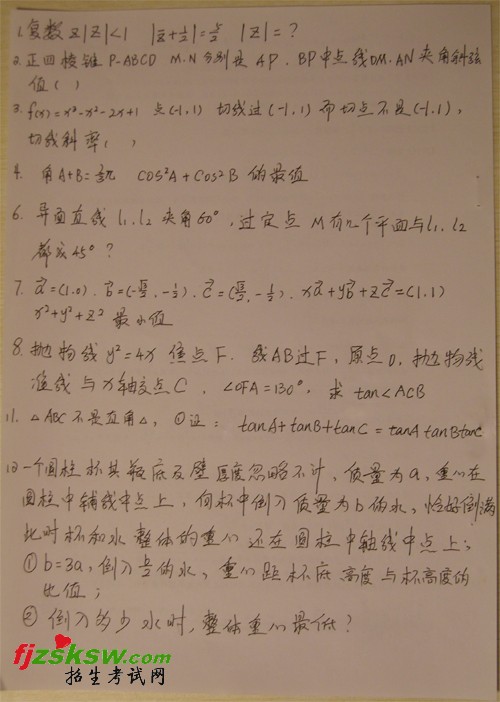 1. 复数 z |z|<1 |z̄+1/z|=5/2 |z|=?
2. 正四棱锥 P-ABCD M.N分别是 AP. BP中点 线DM.AN夹角斜弦
值 ( )
3. f(x)=x³-x²-2x+1 点(-1,1) 切线过(-1,1)而切点不是(-1,1),
切线斜率( )
4. 角A+B= cos²A+cos²B 的最值
6. 异面直线 l₁.l₂ 夹角60°,过定点 M有几个平面与l₁.l₂
都成45°?
7. a⃗=(1.0). b⃗=(-√3/2,-1/2). c⃗=(√3/2,-1/2). xa⃗+yb⃗+zc⃗=(1.1)
x²+y²+z² 最小值
8. 抛物线 y²=4x 焦点F. 线AB过F,原点O,抛物线
准线与x轴交点C. ∠OFA=130°, 求 tan∠ACB
11. △ABC不是直角△, ①证: tanA+tanB+tanC=tanAtanBtanC
10 一个圆柱杯其瓶底及壁厚度忽略不计,质量为a,重心在
圆柱中轴线中点上,向杯中倒入质量为b的水,恰好倒满
此时杯和水整体的重心还在圆柱中轴线中点上;
①b=3a,倒入 的水,重心距杯底高度与杯高度的
比值;
②倒入多少水时,整体重心最低?
fjzsksw.com
招生考试网